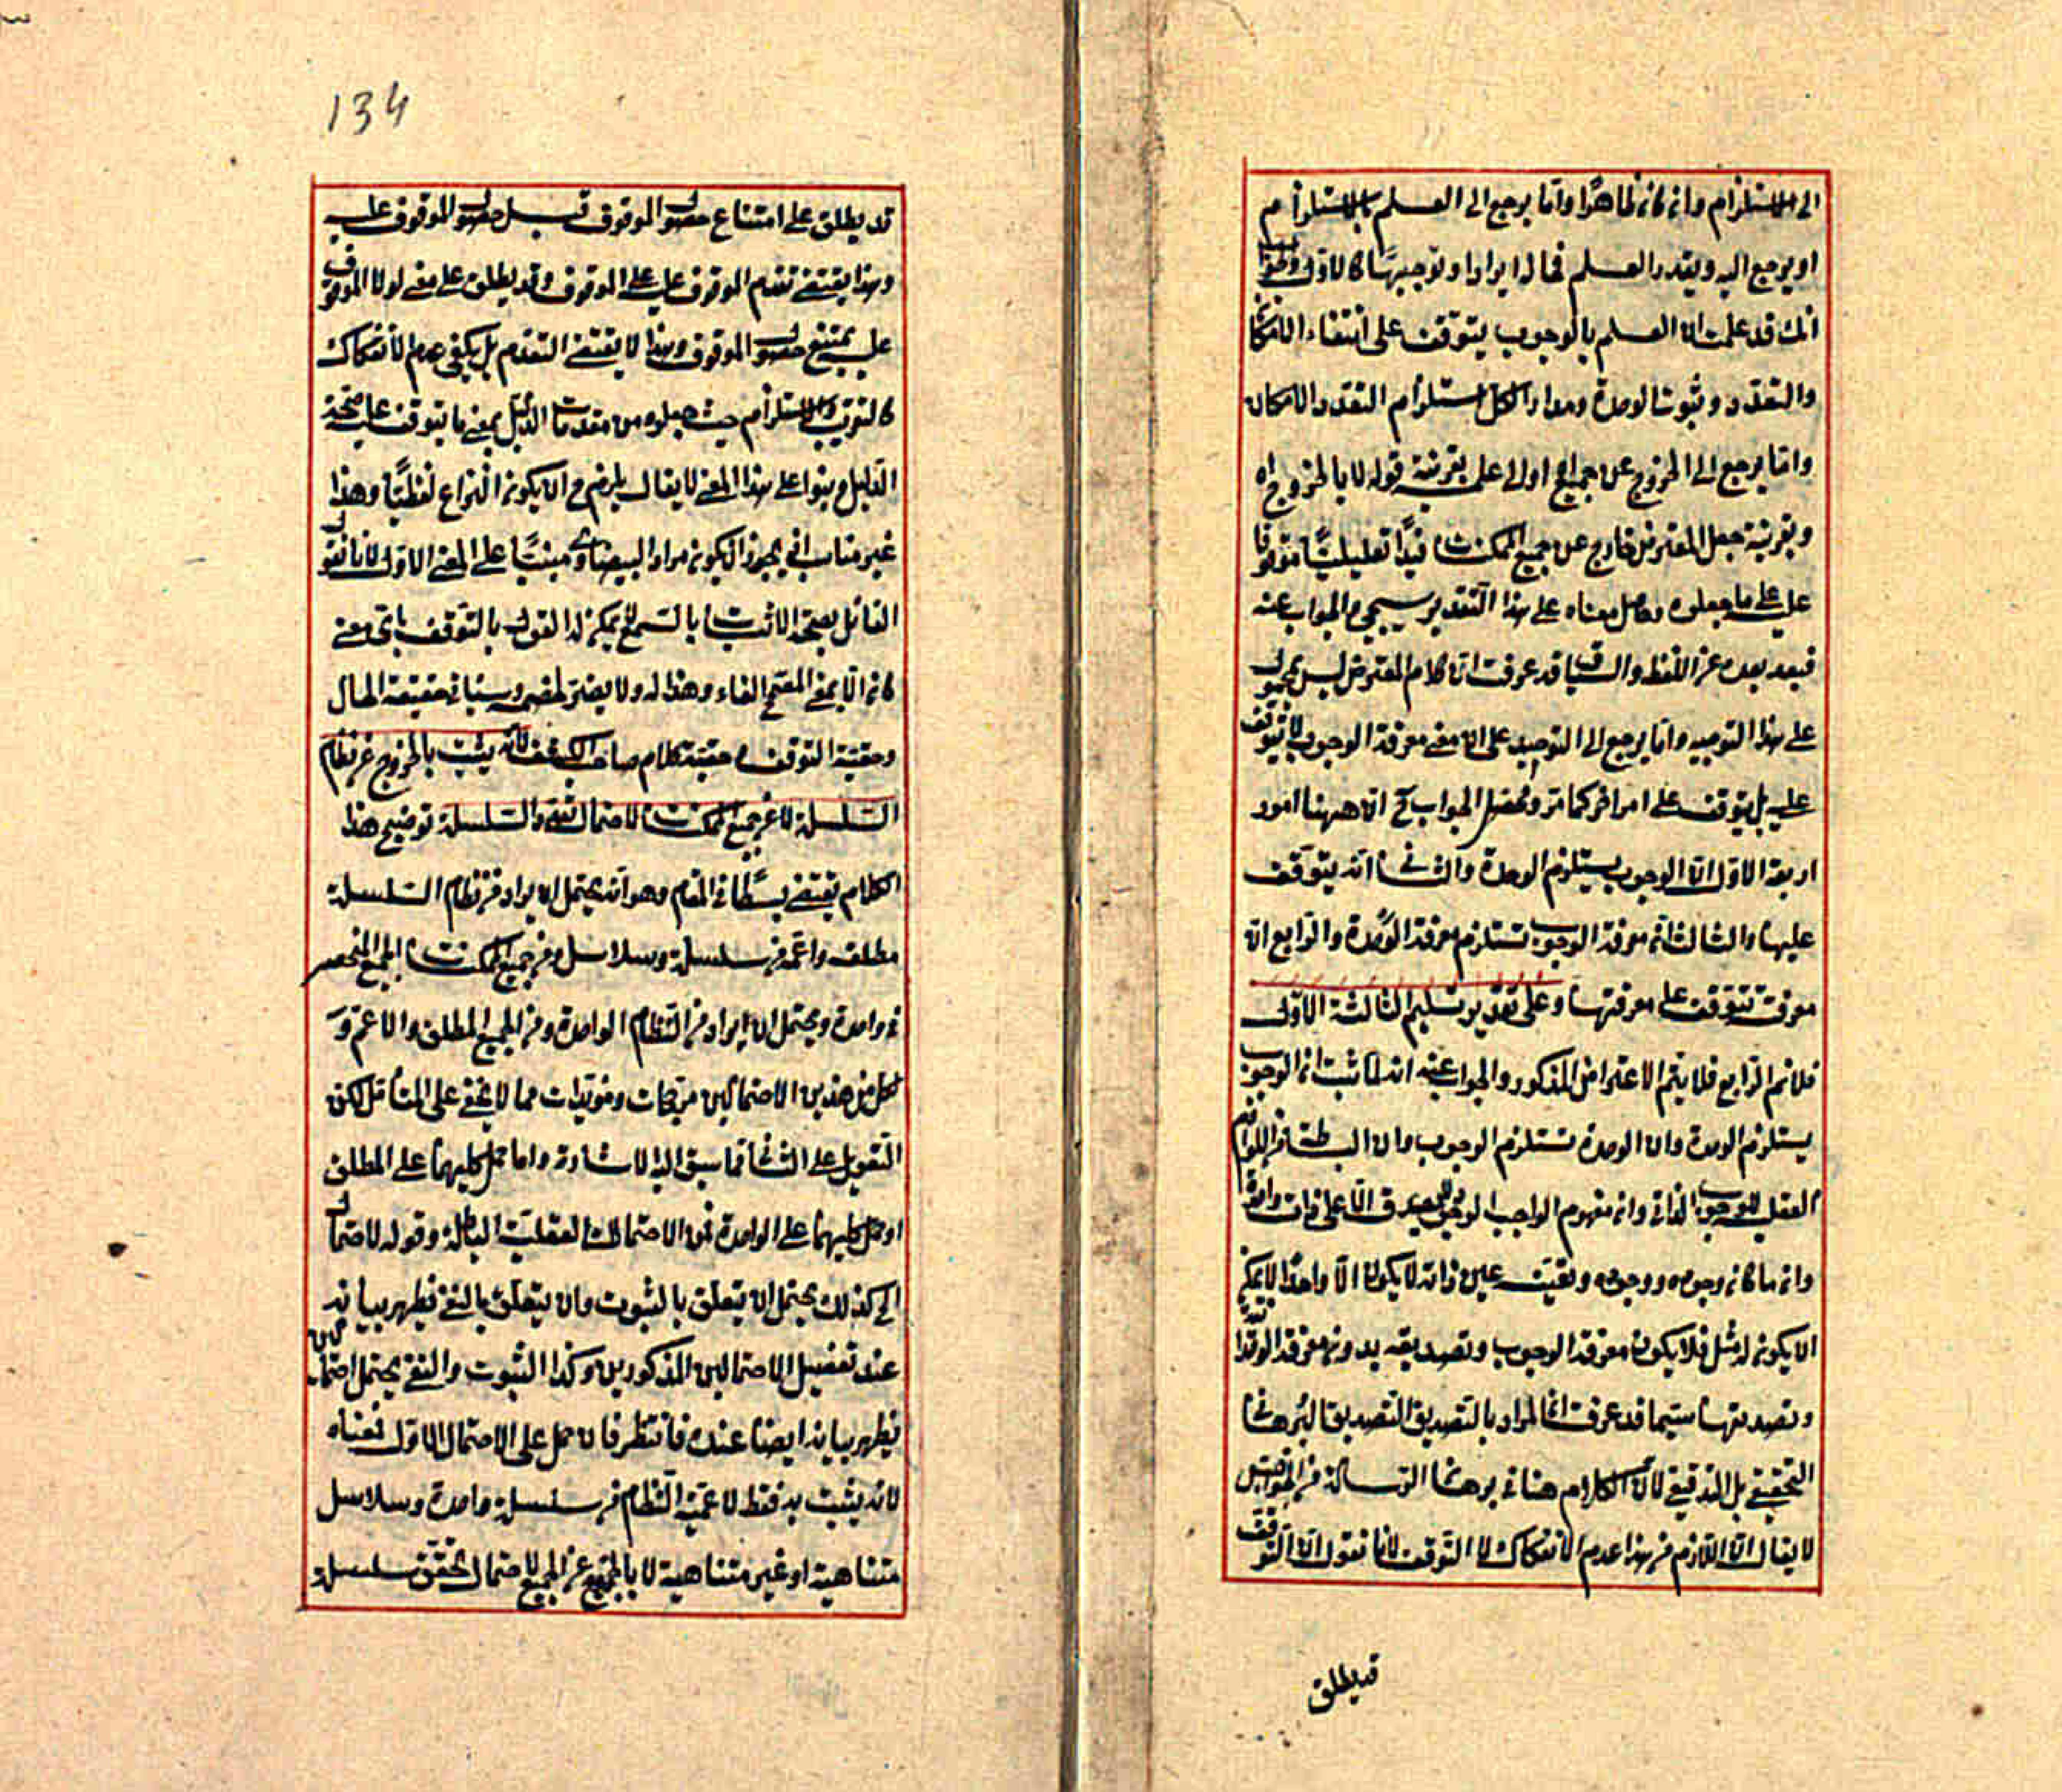 الى الاستلزام وان كان ظاهرا واما يرجع الى العلم بالاستلزام
او يرجع اليه ويقدر العلم فماله ايرادا وتوجيها كالاول
انك قد علمت ان العلم بالوجوب يتوقف على انتفاء الامكان
والتعدد وثبوت الوحدة ومدار الكل استلزام التعدد الامكان
واما يرجع الى الخروج عن جميع اولى علمه بقرينة قوله لا بالخروج اه
وبقرينة جعل المعترض خارج عن جميع الممكنات قيدا تعليليا موقوفا
عليه على ما جعلوه وحاصل معناه على هذا التقدير سيجيء الجواب عنه
فبعد بعده عن اللفظ والسياق قد عرفت ان كلام المعترض ليس بمحمول
على هذا التوجيه واما يرجع الى التوحيد على ان معنى معرفة الوجوب لا تتوقف
عليه بل يتوقف على امر اخر كما مر ومحصل الجواب ح ان ههنا امور
اربعة الاول ان الوجوب يستلزم الوحدة والثاني انه يتوقف
عليها والثالث ان معرفة الوجوب تستلزم معرفة الوحدة والرابع ان
معرفته تتوقف على معرفتها وعلى تقدير تسليم الثالثة الاول
فلانم الرابع فلا يتم الاعتراض المذكور والجواب عنه انه لما ثبت ان الوجوب
يستلزم الوحدة وان الوحدة تستلزم الوجوب وان البساطة من اللوازم
العقلية للوجوب الذاتي وان مفهوم الواجب الوجود لا يصدق الا على ذات واحدة
وان ما كان وجوده ووجوبه وتعينه عين ذاته لا يكون الا واحدا لا يمكن
ان يكون له مثل فلا يكون معرفة الوجوب وتصديقه بدون معرفة الوحدة
وتصديقها سيما قد عرفت ان المراد بالتصديق التصديق البرهاني
التحقيقي بل التدقيقي لان الكلام هنا في برهان الرسالة من الخواص
لا يقال ان اللازم من هذا عدم الانفكاك لا التوقف لانا نقول ان التوقف
قد يطلق
134
قد يطلق على امتناع حصول الموقوف قبل حصول الموقوف عليه
وهذا يقتضي تقدم الموقوف عليه على الموقوف وقد يطلق على معنى لولا الموقوف
عليه يمتنع حصول الموقوف وهذا لا يقتضي التقدم بل يكفي عدم الانفكاك
كالتقريب والاستلزام حيث جعلوه من مقدمات الدليل بمعنى ما يتوقف عليه صحة
الدليل وبنوا على هذا المعنى لا يقال يلزم ح ان يكون النزاع لفظيا وهذا
غير مناسب اذ يجوز ان يكون مراد البيضاوي مبنيا على المعنى الاول لانا نقول
القائل بصحة الاثبات بالسمع لا يمكن له القول بالتوقف باي معنى
كان الا بمعنى المصحح الفاء وهذا له ولا يضر لخصمه وسيأتي حقيقة الحال
وحقيقة التوقف وحقيقة كلام صاحب الكشف لانه يثبت بالخروج عن نظام
السلسلة لا عن جميع الممكنات لاحتمال النفي والسلسلة توضيح هذا
الكلام يقتضي بسطا في المقام وهو انه يحتمل ان يراد من نظام السلسلة
مطلقه واعمه من سلسلة وسلاسل ومن جميع الممكنات الجميع المنحصر
في واحدة ويحتمل ان يراد من النظام الواحدة ومن الجميع المطلق والاعم و
لكل من هذين الاحتمالين مرجحات ومؤيدات مما لا يخفى على المتأمل لكن
التعويل على الثاني مما سبق اليه الاشارة واما حمل كليهما على المطلق
او حمل كليهما على الواحدة فمن الاحتمالات العقلية الباطلة وقوله لاحتمال
الى كذلك يحتمل ان يتعلق بالثبوت وان يتعلق بالنفي فيظهر بيانه
عند تفصيل الاحتمالين المذكورين وكذا الثبوت والنفي يحتمل احتمالين
فيظهر بيانه ايضا عنده فانتظر فان حمل على الاحتمال الاول فمعناه
لانه يثبت به فقط لاعمية النظام من سلسلة واحدة وسلاسل
متناهية او غير متناهية لا بالجميع عن الجميع لاحتمال تحقق سلسلة